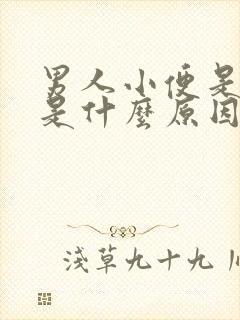 男人小便是
是什麼原因
淺草九十九